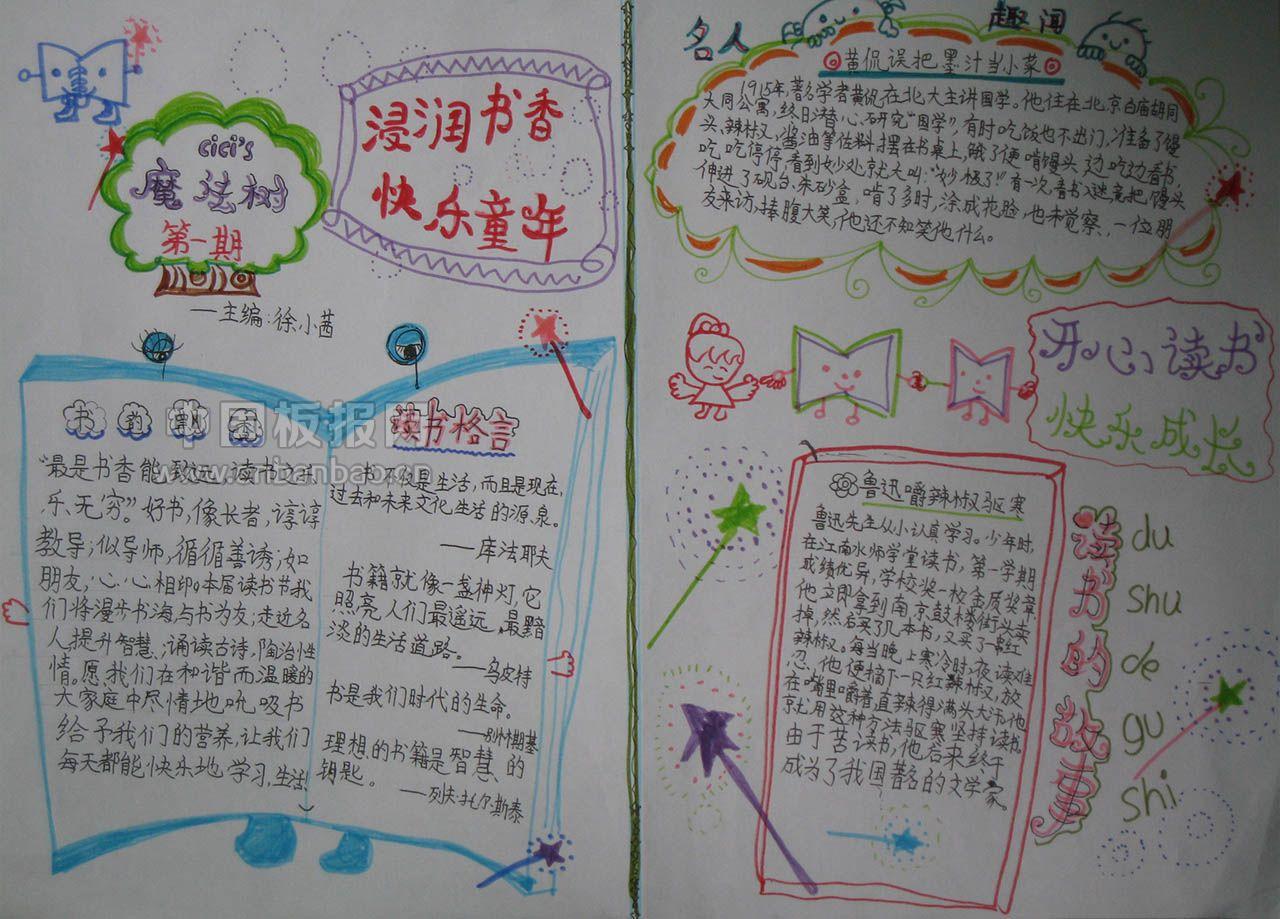 cici's
魔法树
第一期
浸润书香
快乐童年
—主编:徐小茜
书的飘香
读书格言
“最是书香能致远,读书之
乐无穷”。好书,像长者,谆谆
教导;似导师,循循善诱;如
朋友,心心相印。本届读书节我
们将漫步书海与书为友;走近名
人提升智慧;诵读古诗,陶冶性
情。愿我们在和谐而温暖的
大家庭中尽情地吮吸书
给予我们的营养,让我们
每天都能快乐地学习,生活
书不仅是生活,而且是现在,
过去和未来文化生活的源泉。
——库法耶夫
书籍就像一盏神灯,它
照亮人们最遥远,最黯
淡的生活道路。
——乌皮特
书是我们时代的生命。
——别林斯基
理想的书籍是智慧的
钥匙。
——列夫·托尔斯泰
中国板报网
www.cnbanbao.cn
名人
趣闻
黄侃误把墨汁当小菜
1915年,著名学者黄侃在北大主讲国学。他住在北京白庙胡同
大同公寓,终日潜心研究“国学”,有时吃饭也不出门,准备了馒
头、辣椒、酱油等佐料摆在书桌上,饿了便啃馒头,边吃边看书
吃吃停停,看到妙处就大叫:“妙极了”有一次,看书入迷,竟把馒头
伸进了砚台、朱砂盒,啃了多时,涂成花脸,也未觉察,一位朋
友来访,捧腹大笑,他还不知笑他什么。
开心读书
快乐成长
鲁迅嚼辣椒驱寒
鲁迅先生从小认真学习。少年时,
在江南水师学堂读书,第一学期
成绩优异,学校奖一枚金质奖章,
他立即拿到南京鼓楼街头卖
掉,然后买了几本书,又买了一串红
辣椒。每当晚上寒冷时,夜读难
忍,他便摘下一只红辣椒,放
在嘴里嚼着,直辣得满头大汗。他
就用这种方法驱寒坚持读书
由于苦读书,他后来终于
成为了我国著名的文学家。
读书的故事
du
shu
de
gu
shi